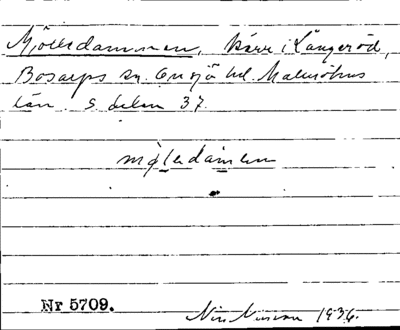 Mjölledammen, kärr i Långeröd,
Bosarps sn. Onsjö hd. Malmöhus
län. S. delen 37.
mølędam̄en
Nr 5709.
Nils Nilsson 1936.